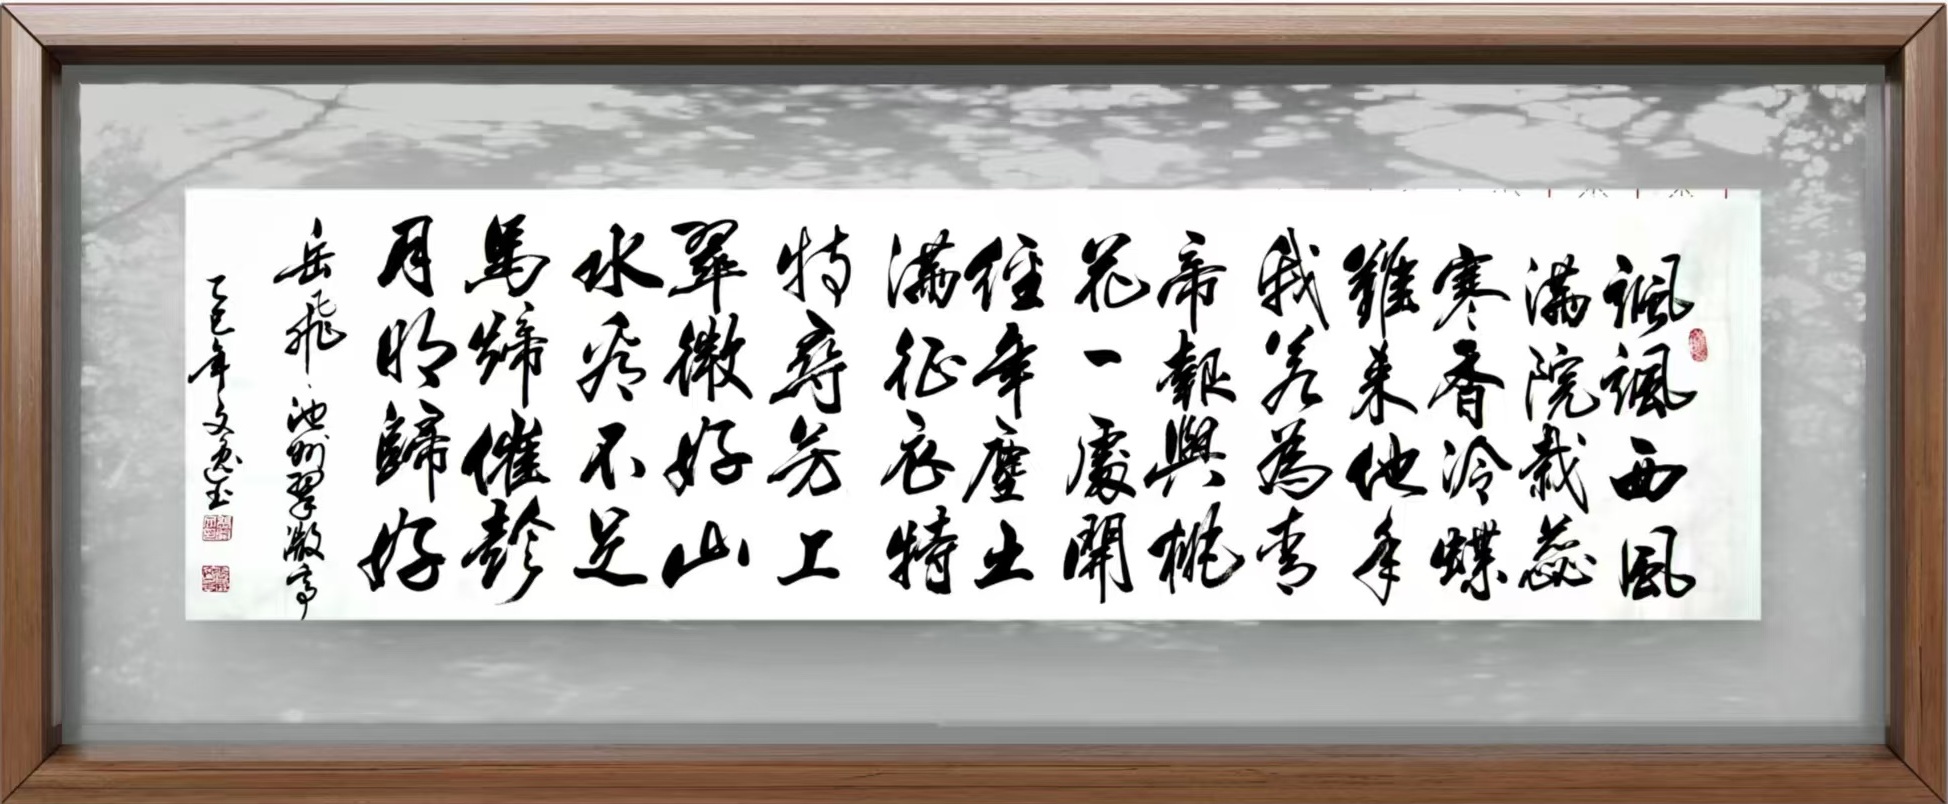 颯颯西風
滿院栽蕊
寒香冷蝶
難来他年
我若為青
帝報與桃
花一處開
經年塵土
滿征衣特
特尋芳上
翠微好山
水看不足
馬蹄催趁
月明歸好
岳飛池州翠微亭
乙巳年文逸玉